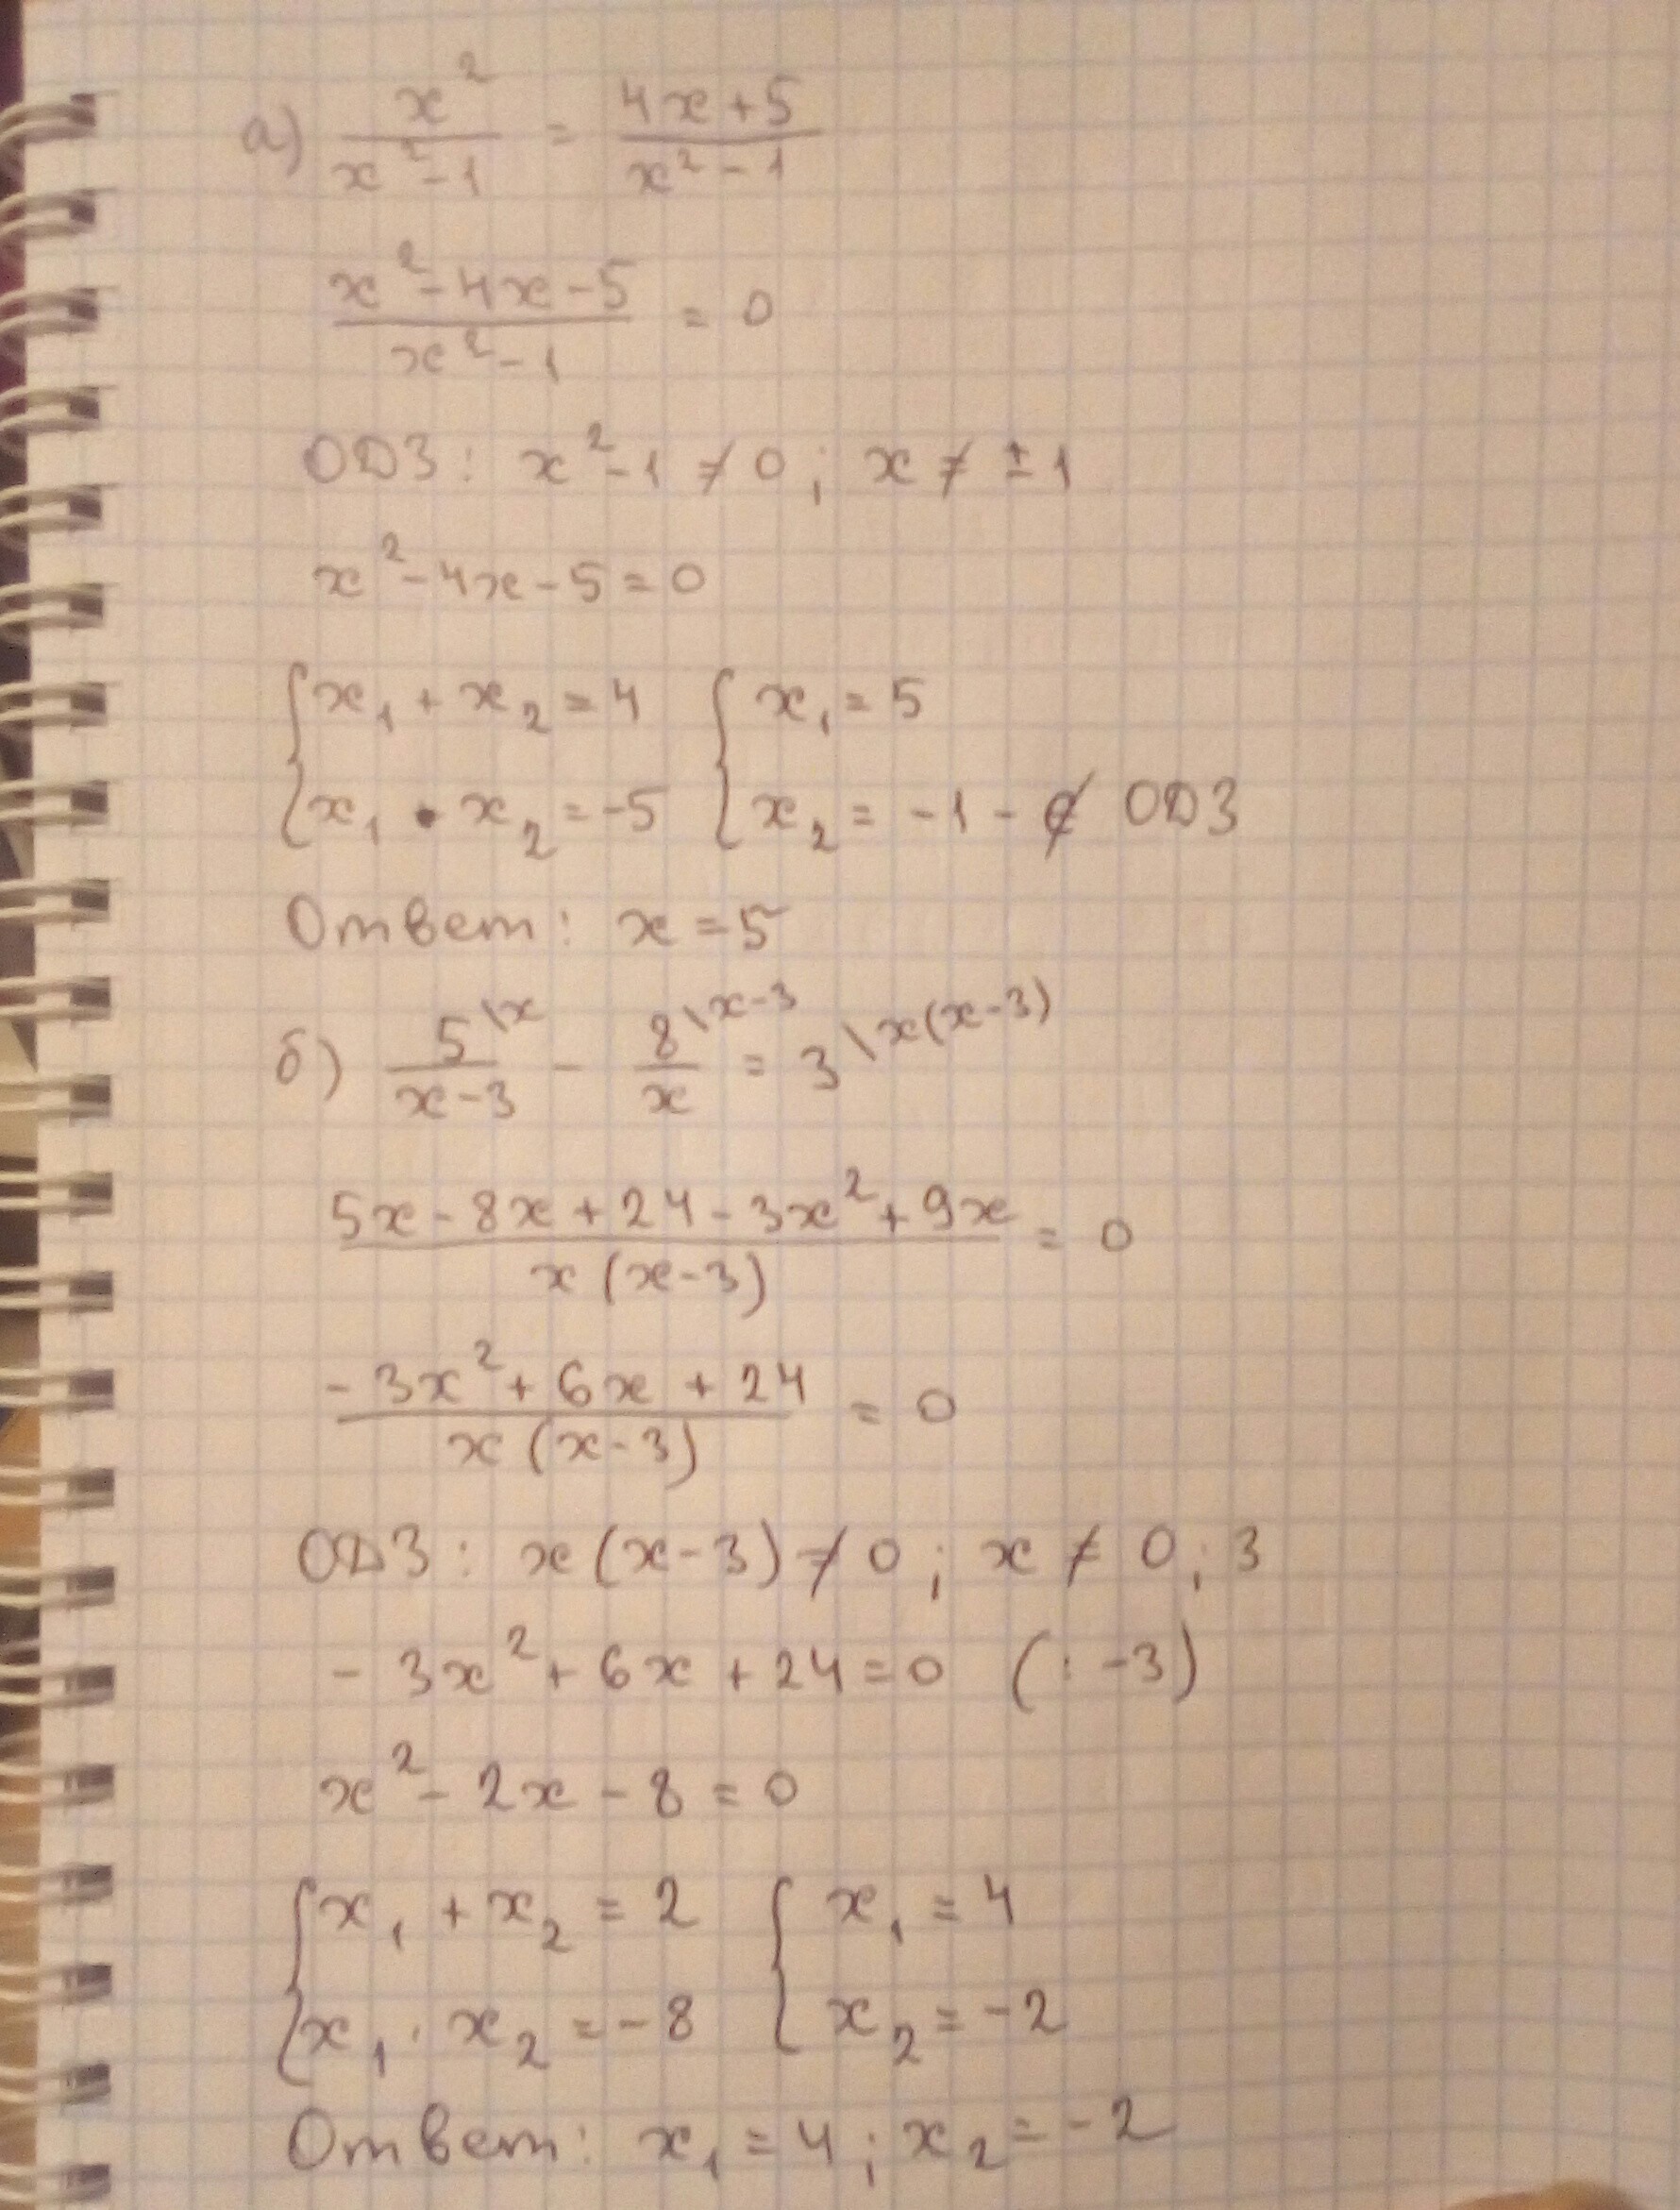 а) x²/(x²-1) = (4x+5)/(x²-1)
(x²-4x-5)/(x²-1) = 0
ОДЗ: x²-1 ≠ 0; x ≠ ±1
x²-4x-5=0
{x₁+x₂=4 {x₁=5
{x₁•x₂=-5 {x₂=-1 - ∉ ОДЗ
Ответ: x=5
б) 5\x/(x-3) - 8\x-3/x = 3\x(x-3)
(5x-8x+24-3x²+9x)/(x(x-3)) = 0
(-3x²+6x+24)/(x(x-3)) = 0
ОДЗ: x(x-3)≠0; x ≠ 0; 3
-3x²+6x+24=0 (:-3)
x²-2x-8=0
{x₁+x₂=2 {x₁=4
{x₁·x₂=-8 {x₂=-2
Ответ: x₁=4; x₂=-2